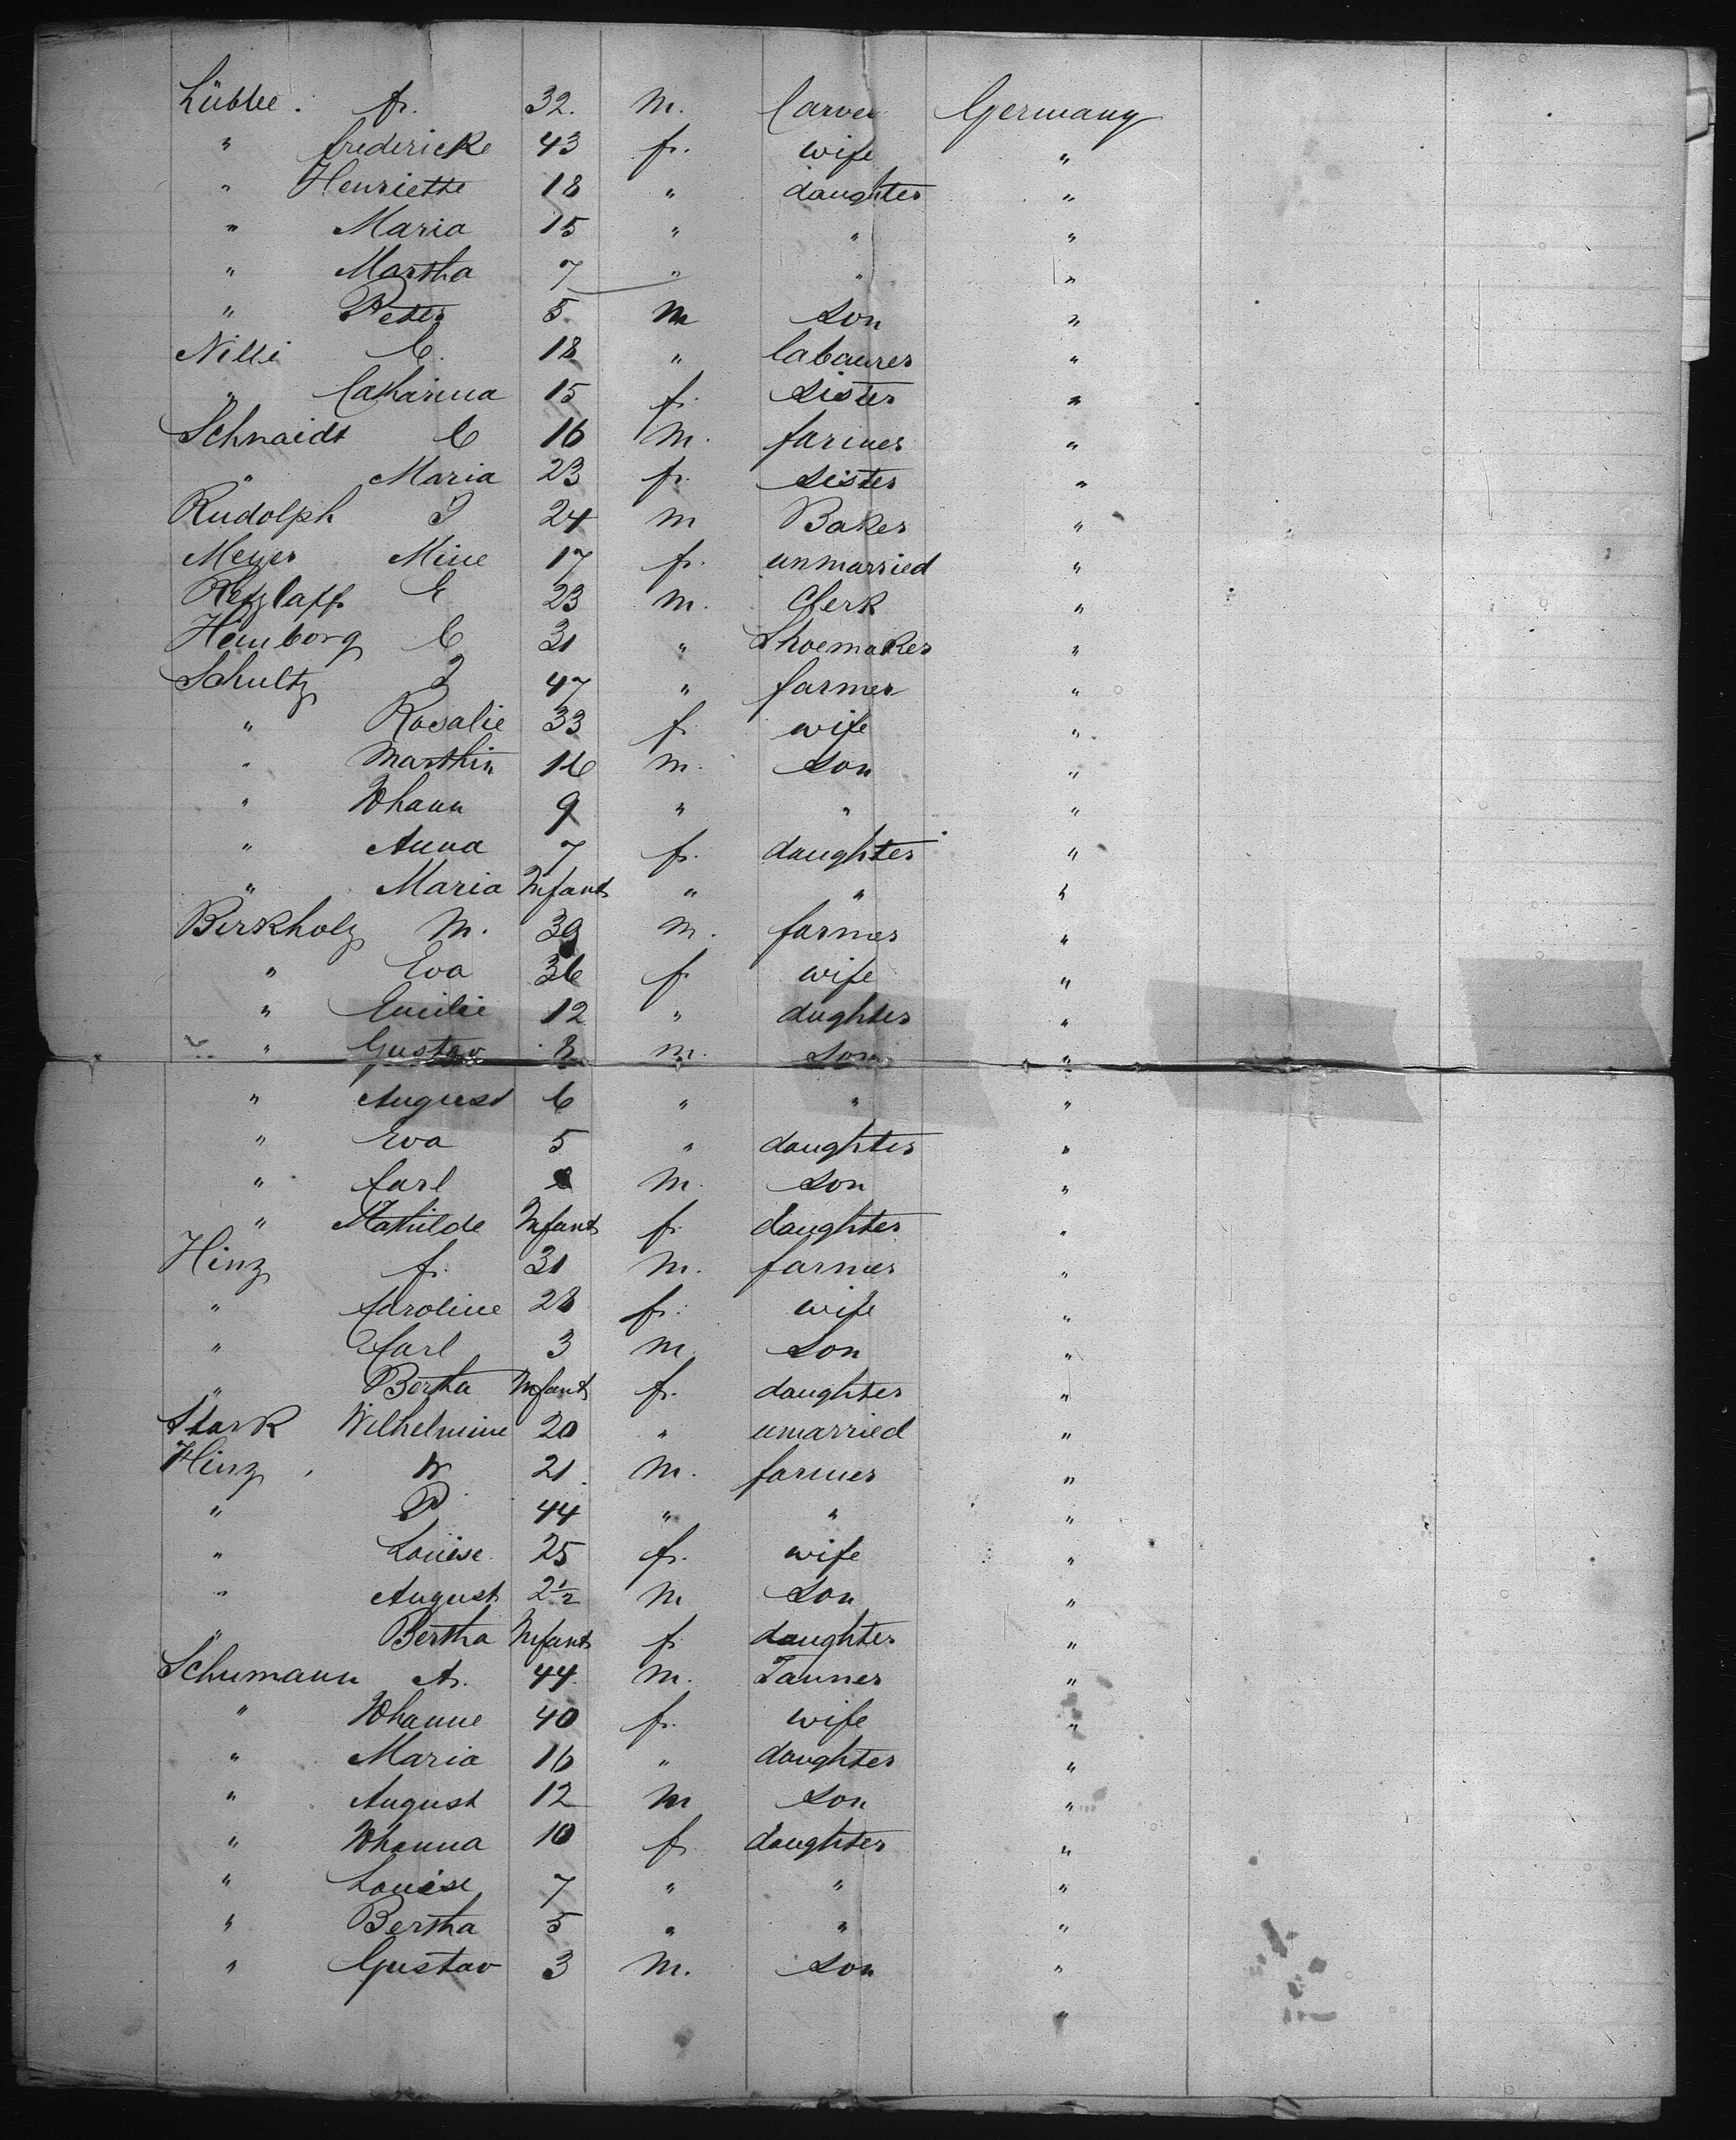 Lübke. fr. 32. m. Carver Germany
" frederieke 43 f. wife "
" Henriette 18 " daughter "
" Maria 15 " " "
" Martha 7 " " "
" Peter 5 m son "
Nilli C. 18 " labaurer "
" Catharina 15 f. sister "
Schnaidt C 16 m. farmer "
" Maria 23 f. sister "
Rudolph J 24 m Baker "
Meyer Mine 17 f. unmarried "
Retzlaff E 23 m. Clerk "
Hamborg C 31 " Shoemaker "
Schultz J 47 " farmer "
" Rosalie 33 f. wife "
" Marthin 16 m. son "
" Johann 9 " " "
" Anna 7 f. daughter "
" Maria Infant " " "
Berkholz M. 39 m. farmer "
" Eva 36 f wife "
" Emilie 12 " dughter "
" Gustav 8 m. son "
" August 6 " " "
" Eva 5 " daughter "
" Carl m. son "
" Mathilde Infant f. daughter "
Hinz f. 31 m. farmer "
" Caroline 28 f. wife "
" Carl 3 m. son "
" Bertha Infant f. daughter "
Stark Wilhelmine 20 " umarried "
Hinz W 21. m. farmer "
" P. 44 " " "
" Louise 25 f. wife "
" August 2½ m son "
" Bertha Infant f. daughter "
Schumann A. 44. m. Tanner "
" Johanne 40 f. wife "
" Maria 16 " daughter "
" August 12 m son "
" Johanna 10 f daughter "
" Louise 7 " " "
" Bertha 5 " " "
" Gustav 3 m. son "
"